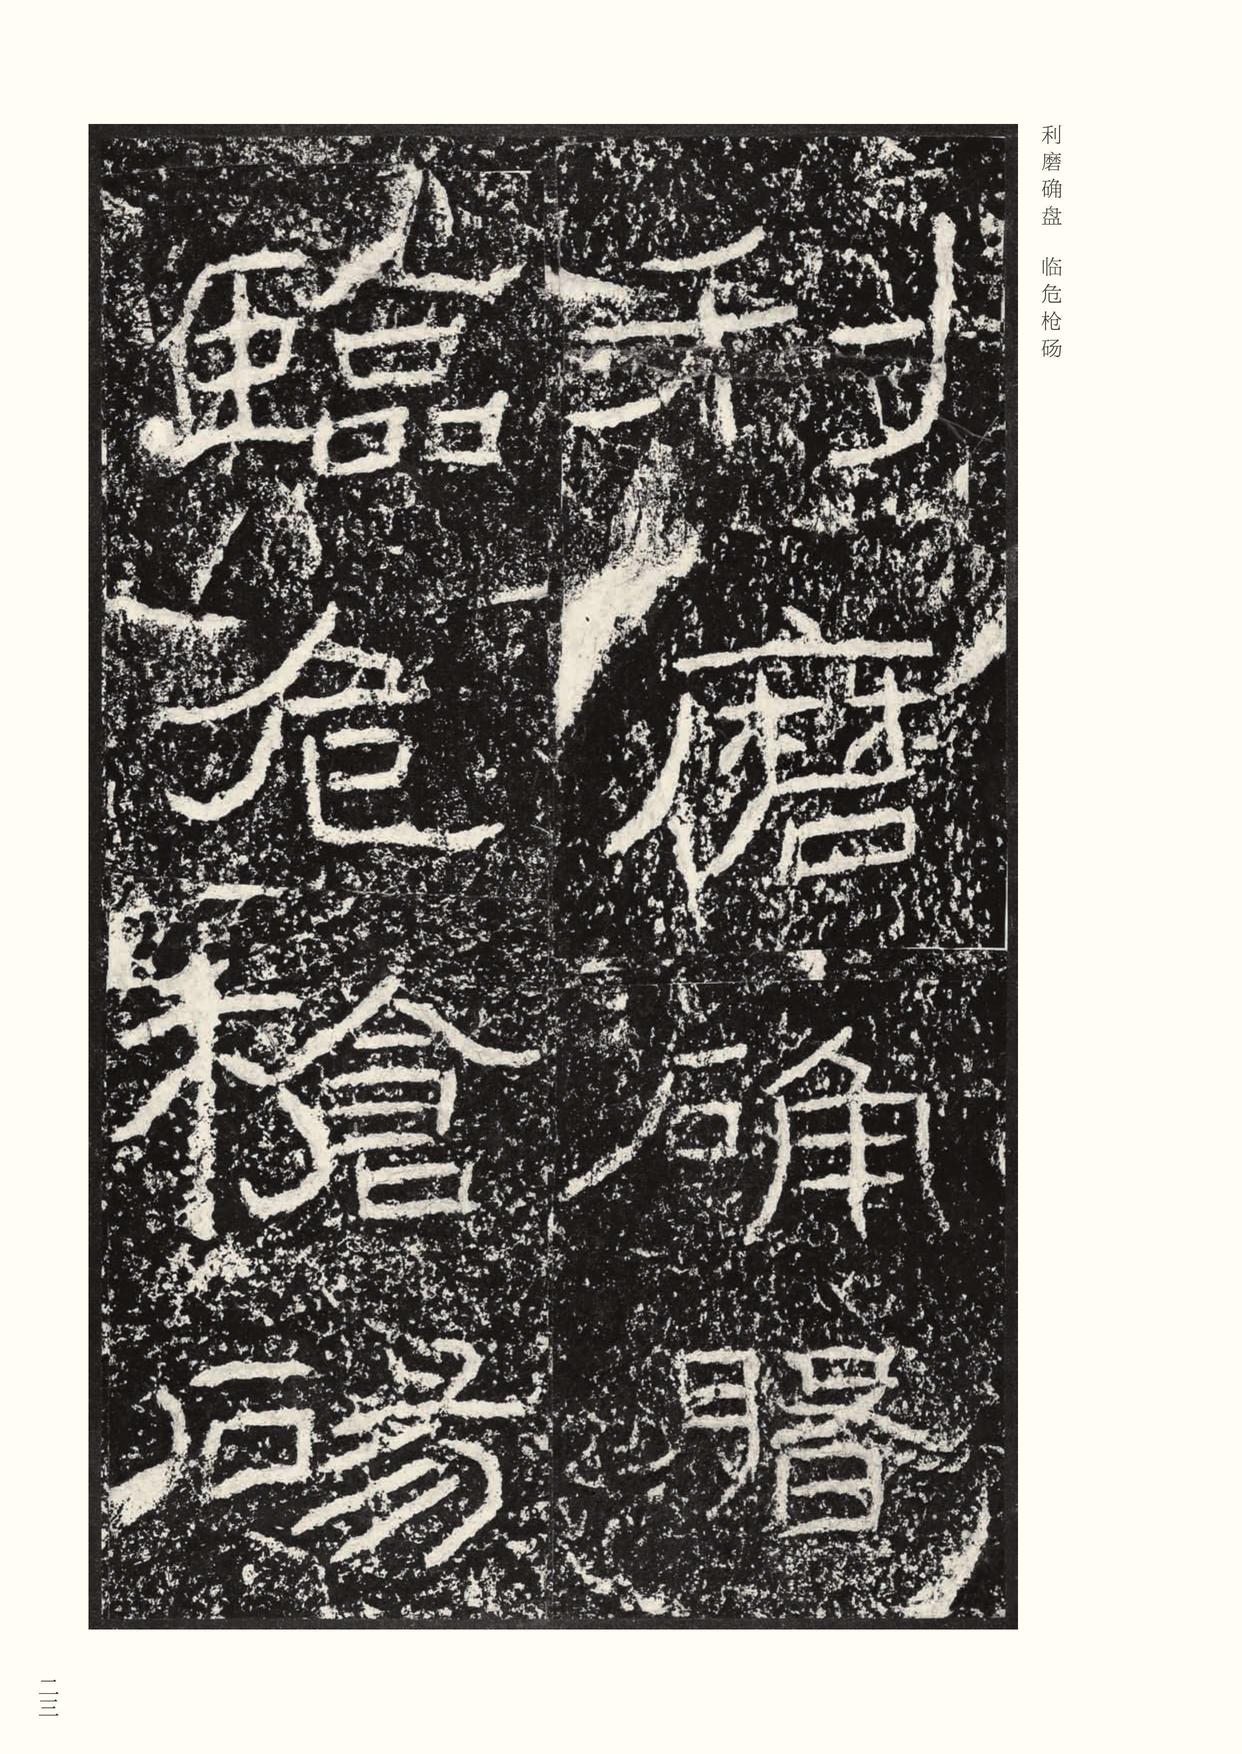 利磨确盘　临危枪砀
利磨确
臨危槍碭
二三